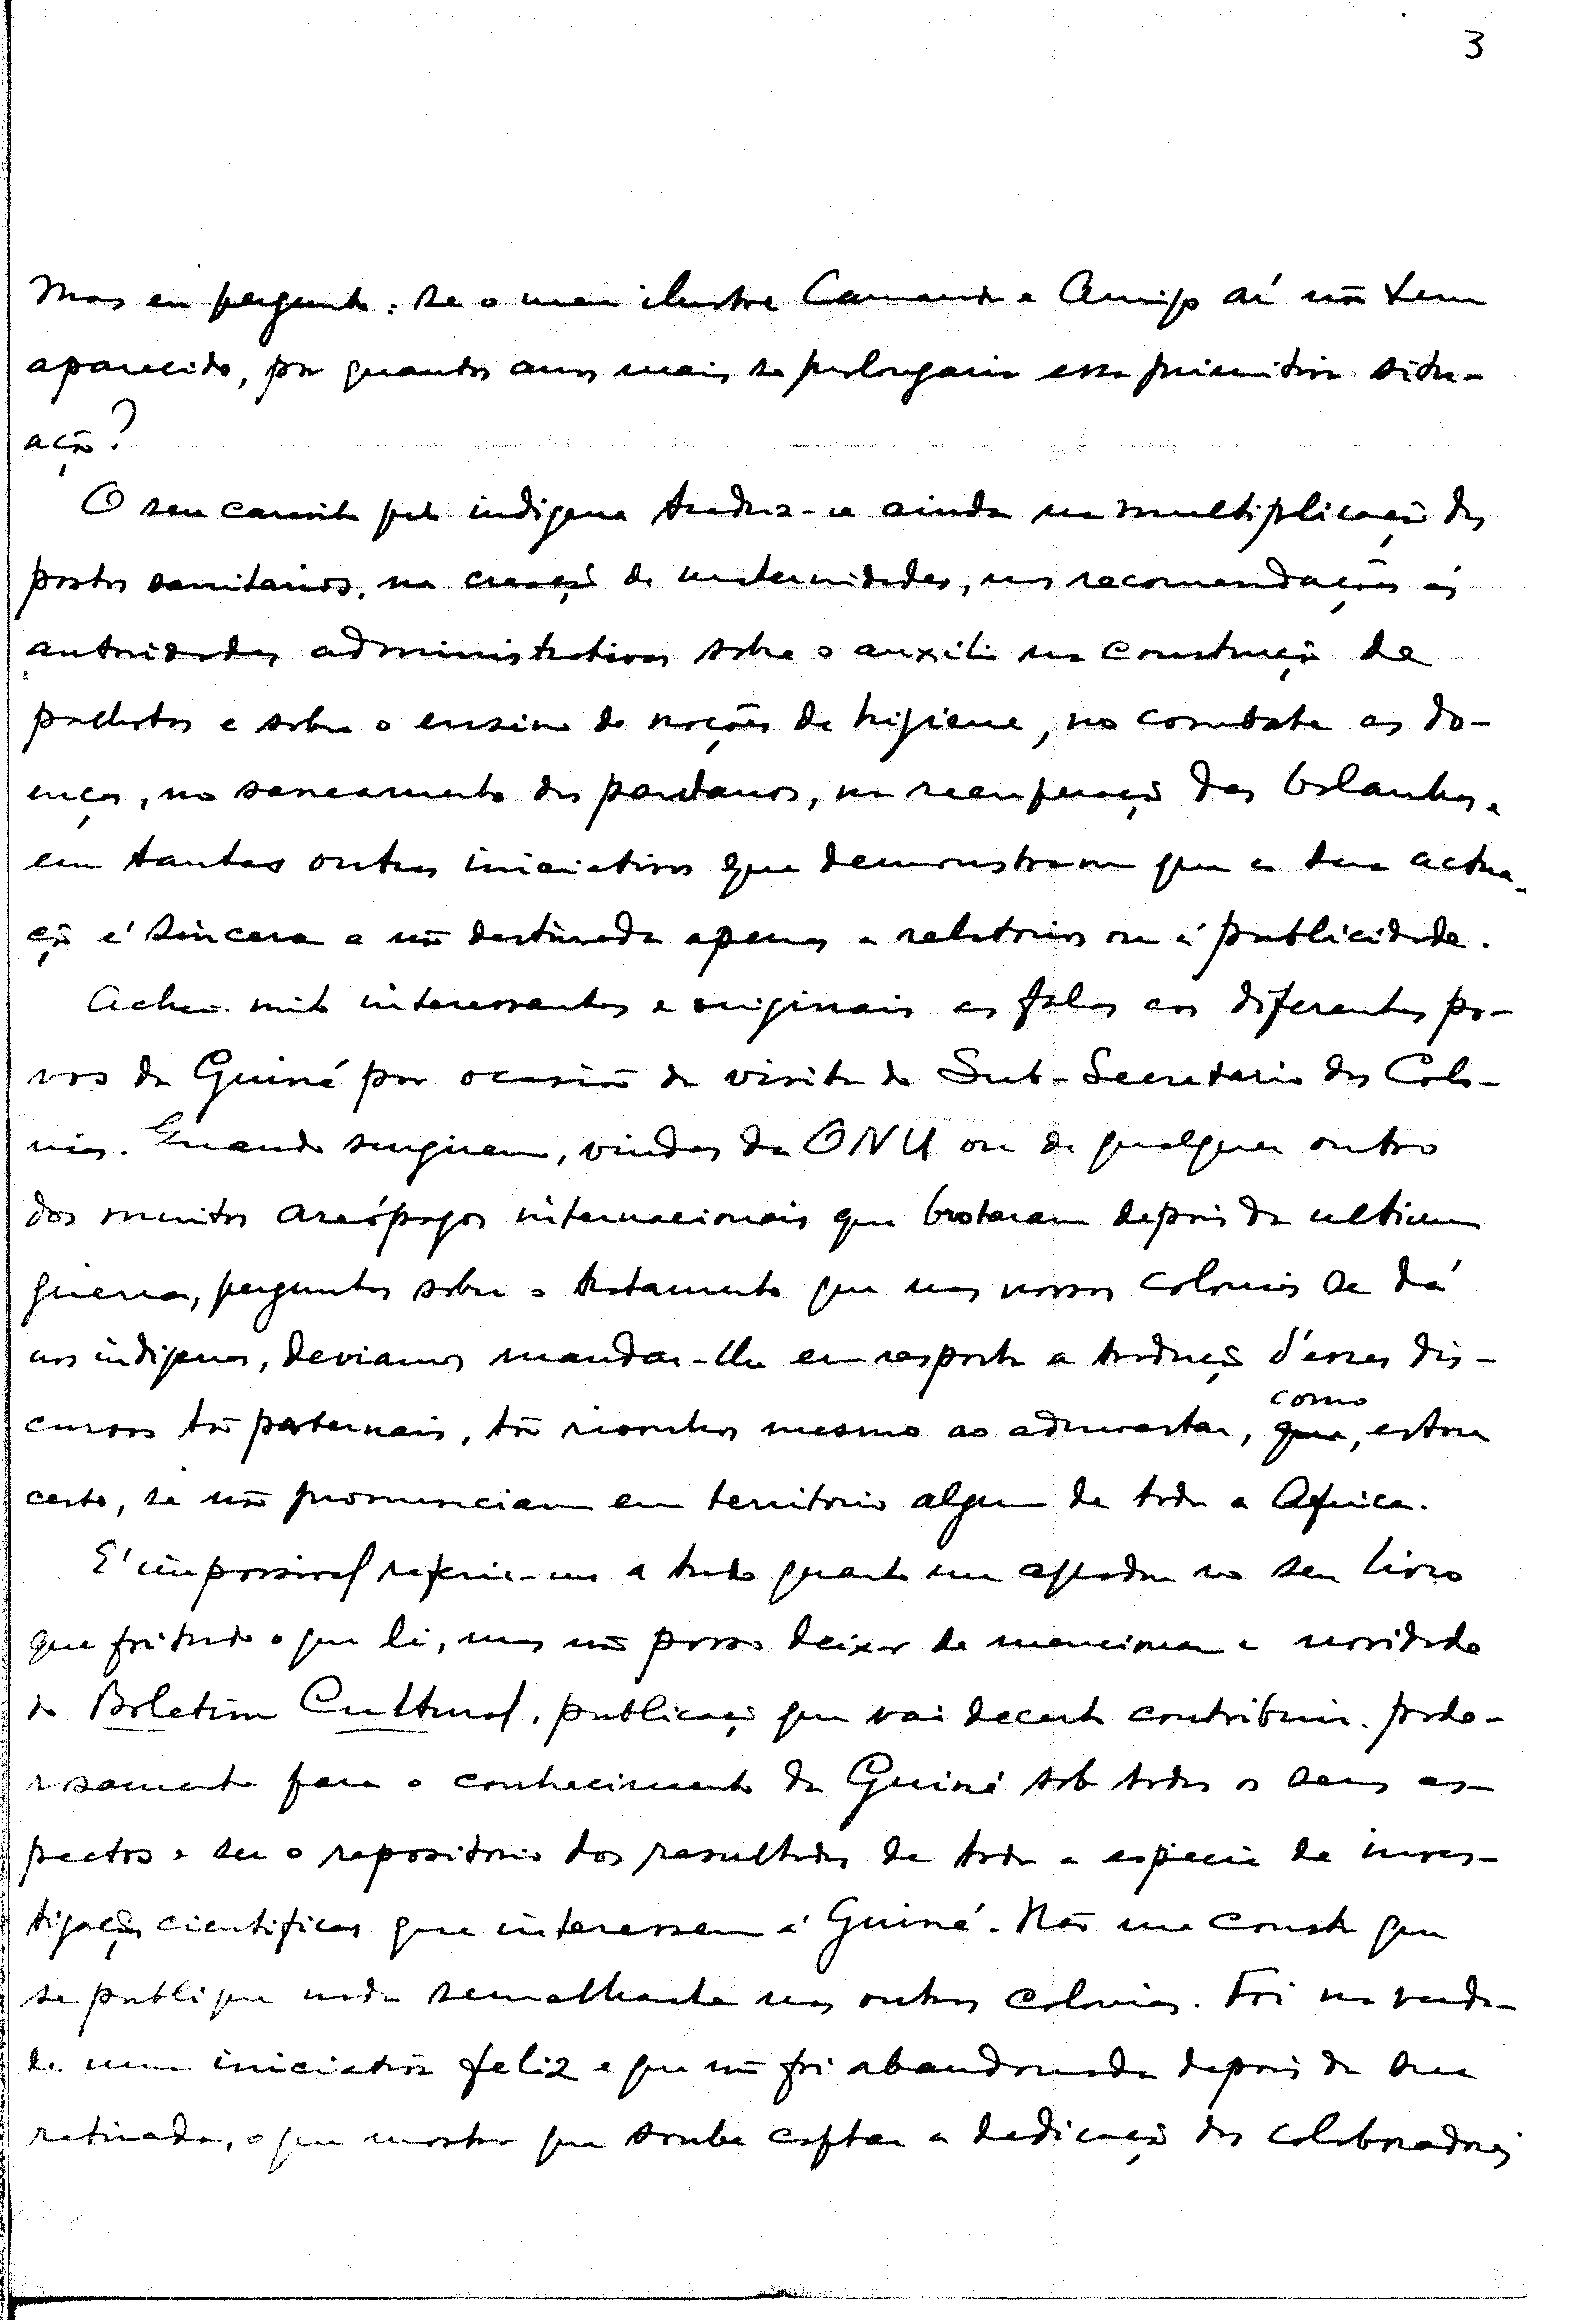 3
Mas eu pergunto: se o meu ilustre Camarada e Amigo aí não tem
aparecido, por quantos anos mais se prolongaria essa primitiva situ-
ação?
O seu carinho pelo indigena traduz-se ainda na multiplicação dos
postos sanitarios, na creação de maternidades, nas recomendações ás
autoridades administrativas sobre o auxilio na construção de
palhotas e sobre o ensino de noções de higiene, no combate as do-
enças, no saneamento dos pantanos, na recuperação das bolanhas e
em tantas outras iniciativas que demonstram que a sua actua-
ção é sincera e não destinada apenas a relatorios ou á publicidade.
Achei muito interessantes e originais as falas aos diferentes po-
vos da Guiné por ocasião da visita do Sub-Secretario das Colo-
nias. Quando surgirem, vindas da ONU ou de qualquer outro
dos muitos areópagos internacionais que brotaram depois da ultima
guerra, perguntas sobre o tratamento que nas nossas colonias se dá
aos indigenas, deviamos mandar-lhe em resposta a tradução d'esses dis-
cursos tão paternais, tão risonhos mesmo ao admoestar, como
que, estou
certo, se não pronunciam em territorio algum de toda a Africa.
É impossivel referir-me a tudo quanto me agradou no seu livro
que foi tudo o que li, mas não posso deixar de mencionar a novidade
do Boletim Cultural, publicação que vai decerto contribuir pode-
rosamente para o conhecimento da Guiné sob todos os seus as-
pectos e ser o repositorio dos resultados de toda a especie de inves-
tigações cientificas que interessem á Guiné. Não me consta que
se publique nada semelhante nas outras colonias. Foi na verda-
de uma iniciativa feliz e que não foi abandonada depois da sua
retirada, o que mostra que soube captar a dedicação dos colaboradores